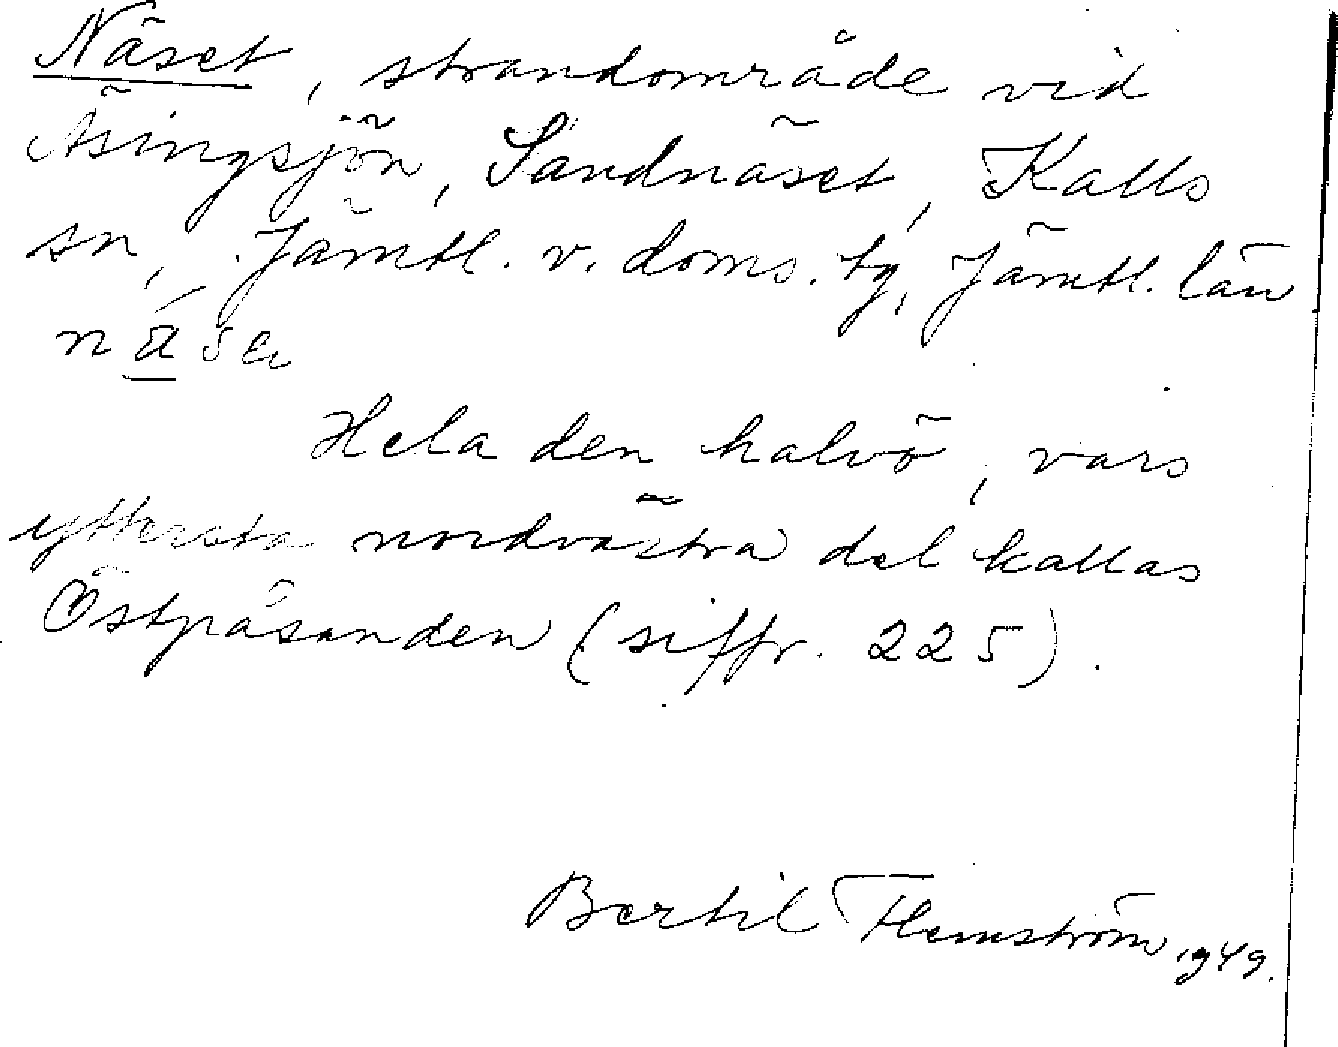 Näset, strandområde vid
Äsingsjön, Sandnäset, Kalls
sn, Jämtl. v. doms. tg, Jämtl. län
näsa
Hela den halvö, vars
yttersta nordvästra del kallas
Östpåsanden (siffr. 225).
Bertil Flemström 1949.